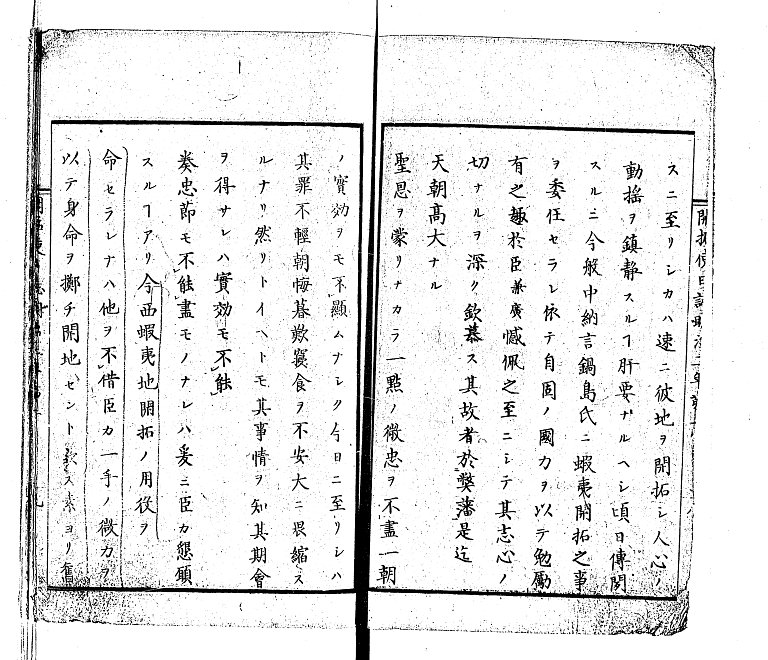 スニ至リシカハ速ニ彼地ヲ開拓シ人心ノ
動揺ヲ鎮静スルヿ肝要ナルヘシ頃日傳聞
スルニ今般中納言鍋島氏ニ蝦夷開拓之事
ヲ委任セラレ依テ自固ノ國力ヲ以テ勉勵
有之趣於臣兼廣憾佩之至ニシテ其志心ノ
切ナルヲ深ク欽慕ス其故者於弊藩是迄
天朝高大ナル
聖恩ヲ蒙リナカラ一點ノ微忠ヲ不盡一朝
ノ實効ヲモ不顯ムナシク今日ニ至リシハ
其罪不輕朝悔暮歎寢食ヲ不安大ニ畏縮ス
ルナリ然リトイヘトモ其事情ヲ知其期會
ヲ得サレハ實効モ不能
奏忠節モ不能盡モノナレハ爰ニ臣カ懇願
スルヿアリ今西蝦夷地開拓ノ用役ヲ
命セラレナハ他ヲ不借臣カ一手ノ微力ヲ
以テ身命ヲ擲チ開地セント欲ス素ヨリ舊